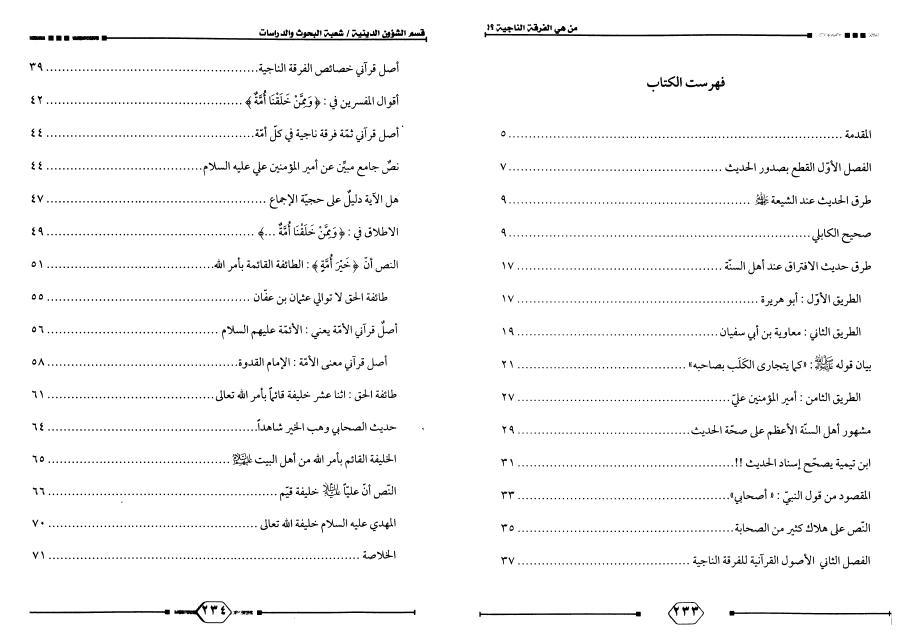 من هي الفرقة الناجية ؟!
فهرست الكتاب
المقدمة ........ ٥
الفصل الأوّل القطع بصدور الحديث ........ ٧
طرق الحديث عند الشيعة ........ ٩
صحيح الكابلي ........ ٩
طرق حديث الافتراق عند أهل السنّة ........ ١٧
الطريق الأوّل : أبو هريرة ........ ١٧
الطريق الثاني : معاوية بن أبي سفيان ........ ١٩
بيان قوله ﷺ : «كما يتجارى الكَلَب بصاحبه» ........ ٢١
الطريق الثامن : أمير المؤمنين عليّ ........ ٢٧
مشهور أهل السنّة الأعظم على صحّة الحديث ........ ٢٩
ابن تيمية يصحّح إسناد الحديث !! ........ ٣١
المقصود من قول النبيّ : « أصحابي» ........ ٣٣
النّص على هلاك كثير من الصحابة ........ ٣٥
الفصل الثاني الأصول القرآنية للفرقة الناجية ........ ٣٧
٢٣٣
قسم الشؤون الدينية / شعبة البحوث والدراسات
أصل قرآني خصائص الفرقة الناجية ........ ٣٩
أقوال المفسرين في : ﴿ وَمِمَّنْ خَلَقْنَا أُمَّةٌ ﴾ ........ ٤٢
أصل قرآني ثمّة فرقة ناجية في كلّ أمّة ........ ٤٤
نصٌ جامع مبيِّن عن أمير المؤمنين علي عليه السلام ........ ٤٤
هل الآية دليلٌ على حجيّة الإجماع ........ ٤٧
الاطلاق في : ﴿ وَمِمَّنْ خَلَقْنَا أُمَّةٌ ...﴾ ........ ٤٩
النص أنّ ﴿ خَيْرَ أُمَّةٍ ﴾ : الطائفة القائمة بأمر الله ........ ٥١
طائفة الحق لا توالي عثمان بن عفّان ........ ٥٥
أصلٌ قرآني الأمّة يعني : الأئمّة عليهم السلام ........ ٥٦
أصل قرآني معنى الأمّة : الإمام القدوة ........ ٥٨
طائفة الحق : اثنا عشر خليفة قائماً بأمر الله تعالى ........ ٦١
حديث الصحابي وهب الخير شاهداً ........ ٦٤
الخليفة القائم بأمر الله من أهل البيت ........ ٦٥
النّص أنّ عليّاً خليفة قيّم ........ ٦٦
المهدي عليه السلام خليفة الله تعالى ........ ٧٠
الخلاصة ........ ٧١
٢٣٤